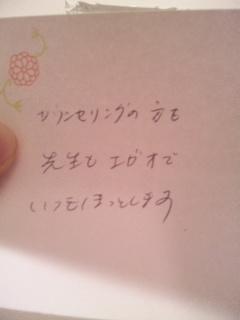 カウンセリングの方も
先生も エガオで
いつもほっとします